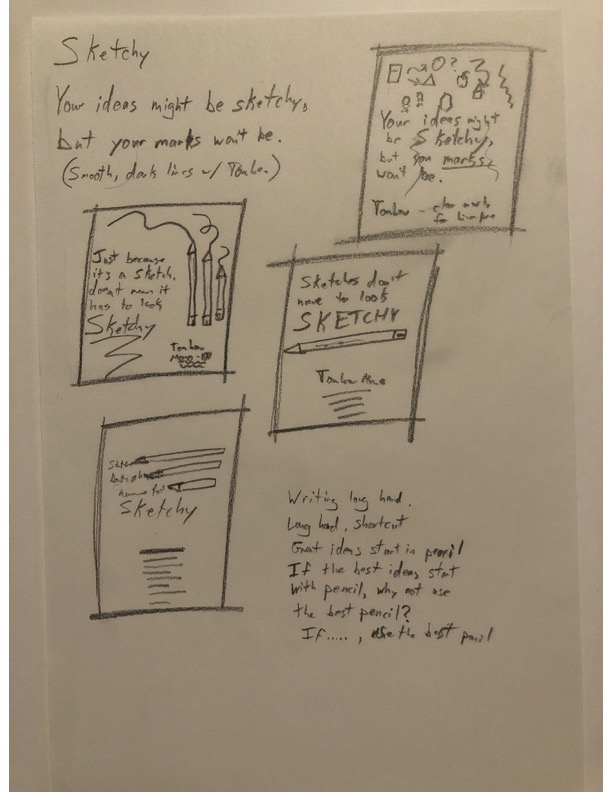 Sketchy
Your ideas might be sketchy,
but your marks won't be.
(Smooth, dark lines w/ Tombow)
Your ideas might
be Sketchy,
but your marks
won't be.
Tombow -
Just because
it's a sketch,
doesn't mean it
has to look
Sketchy
Tombow
Mono
Sketches don't
have to look
SKETCHY
Tombow Mono
Sketchy
Writing long hand.
Long hand, shortcut
Great ideas start in pencil
If the best ideas start
with pencil, why not use
the best pencil?
If....., use the best pencil